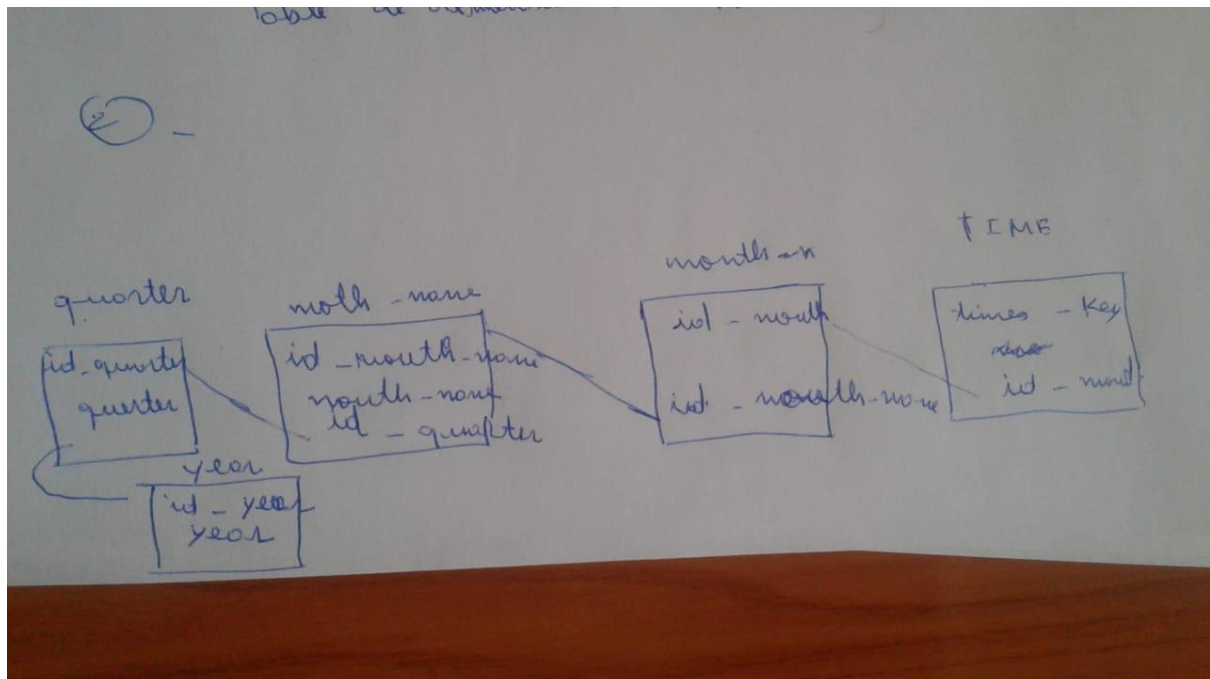 Table de
2 -
quarter
id_quarter
quarter
year
id_year
year
moth_name
id_month_name
month_name
id_quarter
month_n
id_month
id_month_name
TIME
times_key
id_month